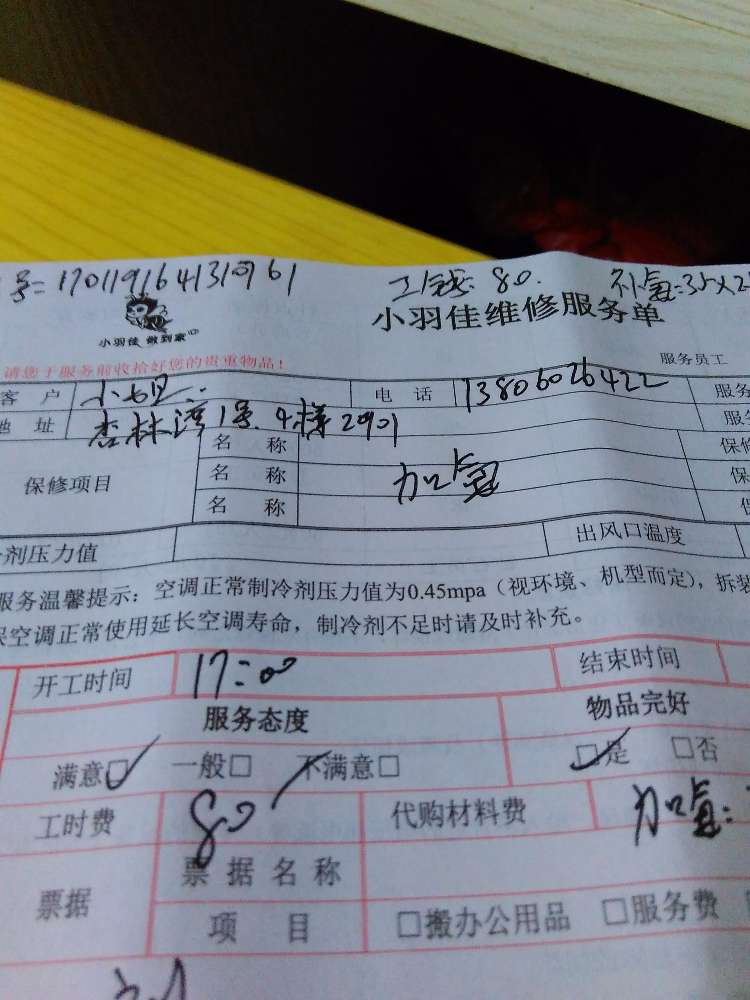 号=1701191641310761 工钱: 80. 补氟=35×2
小羽佳 做到家
小羽佳维修服务单
请您于服务前收拾好您的贵重物品! 服务员工
客 户 电 话 13806026422 服务
地 址 杏林湾1号.4梯2901 服
保修项目 名 称 保修
名 称 加氟 保
名 称
剂压力值 出风口温度
服务温馨提示：空调正常制冷剂压力值为0.45mpa（视环境、机型而定），拆装
空调正常使用延长空调寿命，制冷剂不足时请及时补充。
开工时间 17:00 结束时间
服务态度 物品完好
满意□ 一般□ 不满意□ □是 □否
工时费 80 代购材料费 加氟:
票据 票据名称
项 目 □搬办公用品 □服务费